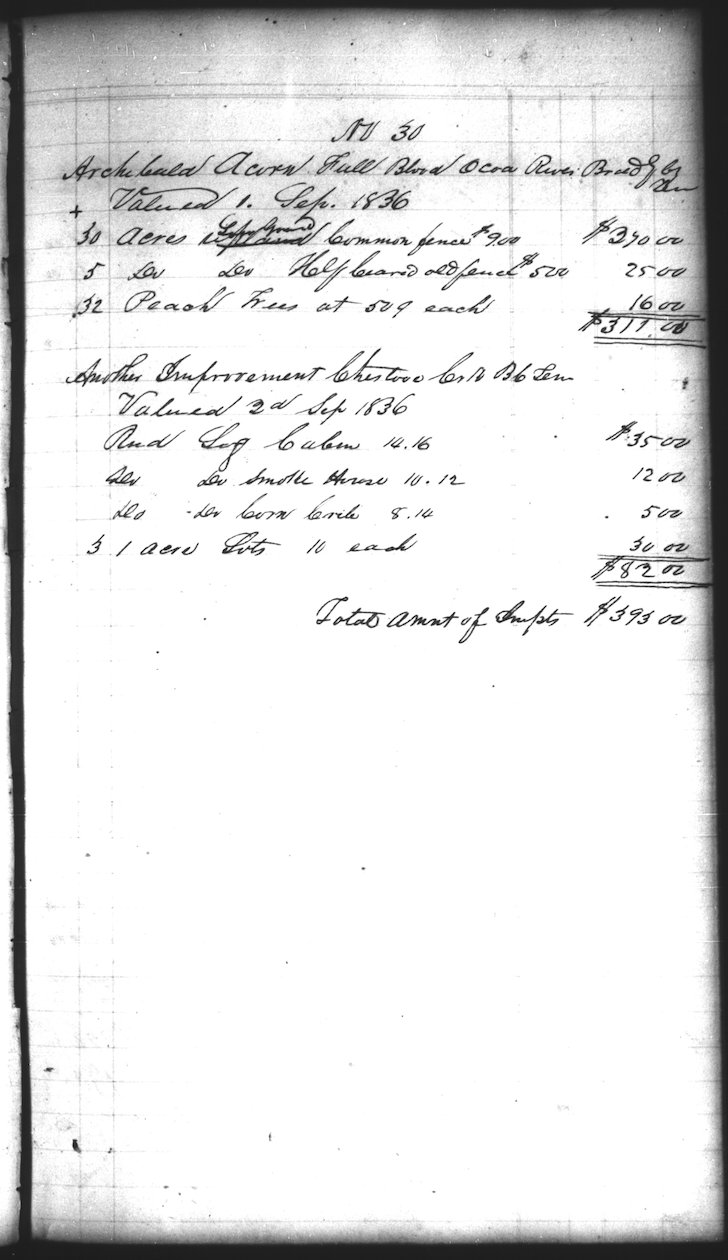 No 30
Archibald Acorn Full Blood Ocoa River Brad
Valued 1. Sep. 1836
30 Acres Common fence $9.00 $270 00
5 Do Do Half Cleared old fence $5 00 25 00
32 Peach Trees at 50¢ each 16 00
$311.00
Another Improvement Chestooe Crk B C Ten
Valued 2d Sep 1836
Rnd Log Cabin 14.16 $35 00
Do Do Smoke House 10.12 12 00
Do Do Corn Crib 8.14 5 00
3 1 acre Lots 10 each 30 00
$82 00
Total Amnt of Impts $393 00